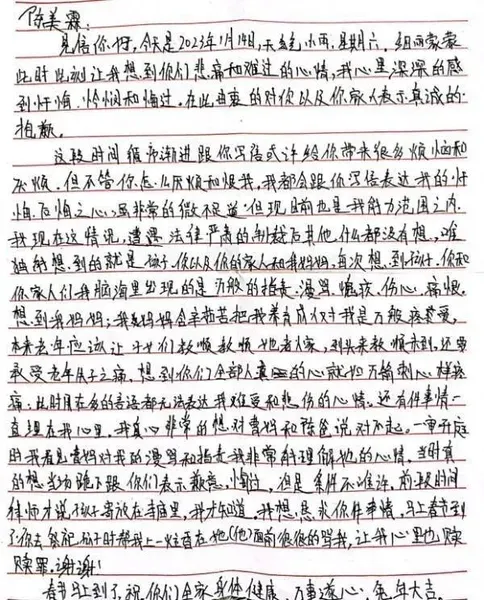 陈美霖:
见信你好,今天是2023年1月14日,天气小雨,星期六,细雨蒙蒙
此时此刻让我想到你们悲痛和难过的心情,我心里深深的感
到忏悔,怜悯和悔过,在此由衷的对你以及你家人表示真诚的
抱歉。
这段时间循序渐进跟你写信或许给你带来很多烦恼和
厌烦,但不管你怎么厌烦和恨我,我都会跟你写信表达我的忏
悔,后悔之心,虽非常的微不足道但现目前也是我能力范围之内
我现在这情况,遭遇法律严肃的制裁后其他什么都没有想,唯
独能想到的就是孩子,你以及你的家人和我妈妈,每次想到孩子,你和
你家人们我脑海里出现的是万般的指责,漫骂,愧疚,伤心,痛恨
想到我妈妈;我妈妈含辛茹苦把我养育成人对我是万般疼爱,
本来去年应该让子女们孝顺孝顺她老人家,到头来孝顺未到,还要
承受老年失子之痛,想到你们全部人真的心就如万箭刺心一样疼
痛;此时用在多的言语都无法表达我难受和悲伤的心情。还有件事情一
直埋在我心里,我真心非常的想对曹妈和陈爸说对不起,一审开庭
时我看见曹妈对我的漫骂和指责我非常能理解她的心情,当时真
的想当场跪下跟你们表示歉意,悔过,但是条件不准许,前段时间
律师才说孩子寄放在寺庙里,我才知道,我想恳求你件事情,马上春节到
了你去祭祀孩子时帮我上一炷香在她(他)面前狠狠的骂我,让我心里也赎
赎罪,谢谢!
春节马上到了,祝你们全家身体健康,万事遂心,兔年大吉。